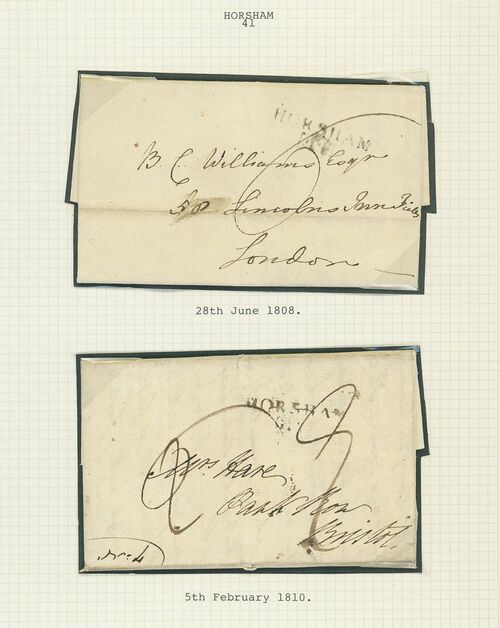 HORSHAM
41
HORSHAM
B. C. Williams Esqr
58 Lincolns Inn Fields
London
28th June 1808.
HORSHAM
Mrs. Hare
Park Row
Bristol.
No. 4
5th February 1810.